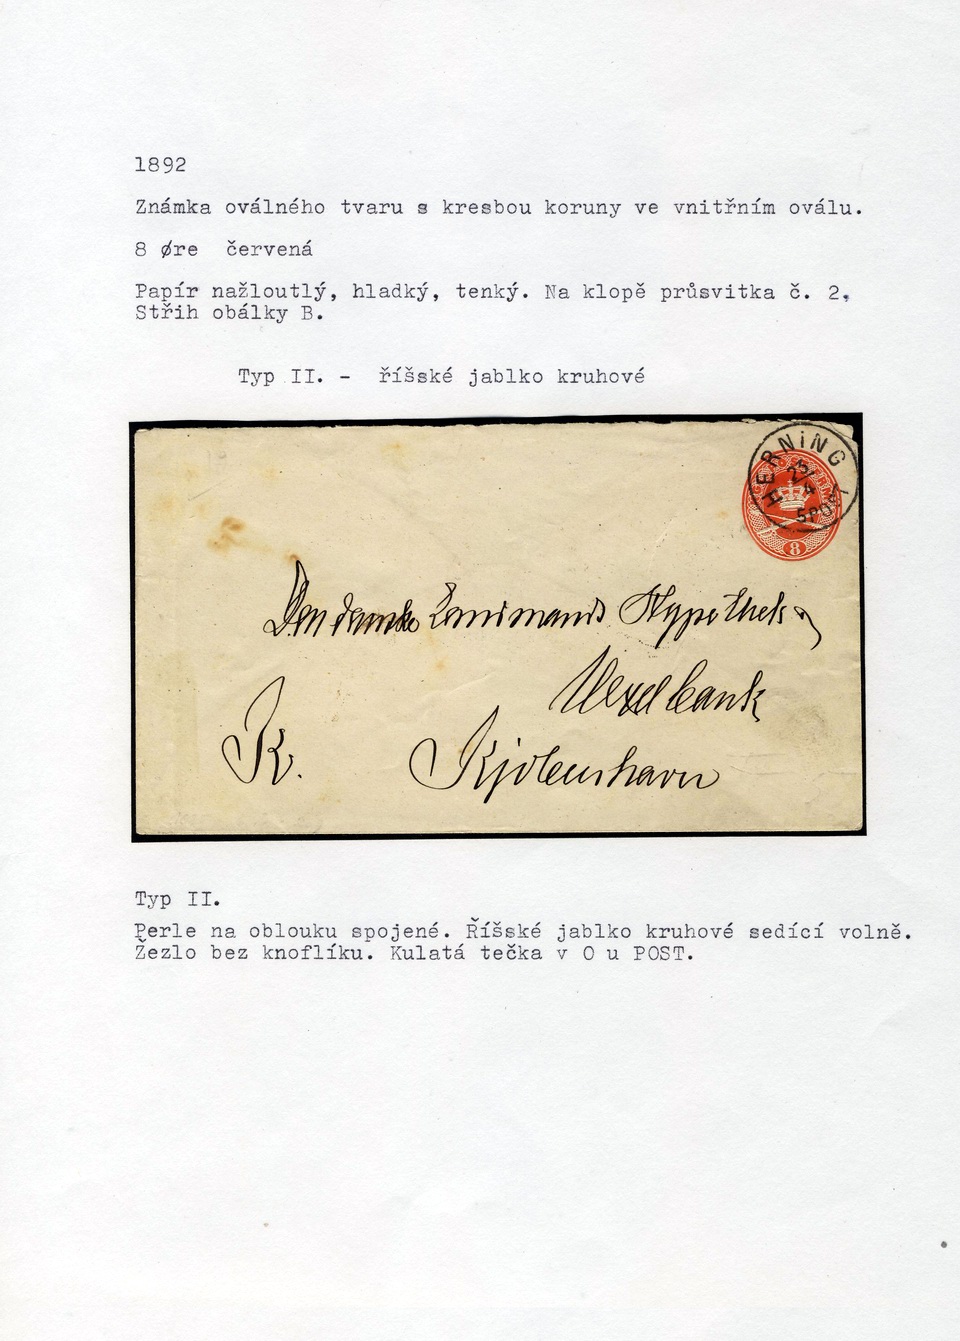 1892
Známka oválného tvaru s kresbou koruny ve vnitřním oválu.
8 Øre červená
Papír nažloutlý, hladký, tenký. Na klopě průsvitka č. 2.
Střih obálky B.
Typ II. - říšské jablko kruhové
HERNING
23/4
5 POST
8
Den danske Landmands Hypothek- og
Vexelbank
K. Kjöbenhavn
Typ II.
Perle na oblouku spojené. Říšské jablko kruhové sedící volně.
Žezlo bez knoflíku. Kulatá tečka v O u POST.